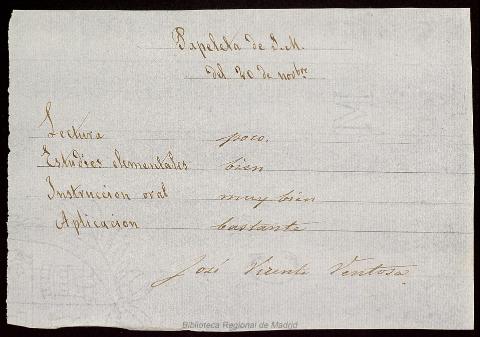 Papeleta de S.M.
del 20 de novbre
Lectura poco.
Estudios elementales bien
Instruccion oral muy bien
Aplicacion bastante
José Vicente Ventosa
Biblioteca Regional de Madrid